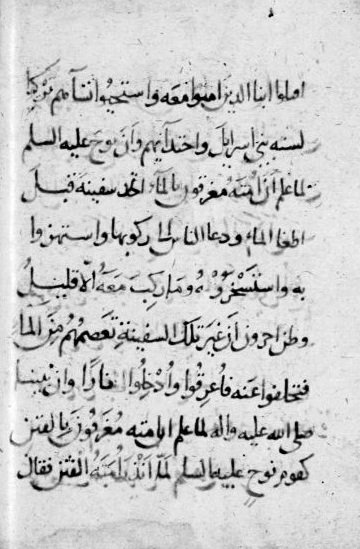 اقتلوا ابنا الذين امنوا معه واستحيوا نسآءهم تركيا
لسنه بني اسرايل واخدانهم وان نوح عليه السلم
لما علم ان امته مغرقون بالمآء اتخذ سفينة قبل
اطغا المآء ودعا الناس الى ركوبها واستهزوا
به واستسخروه وما ركب معه الا قليل
وظن اخرون ان غير تلك السفينة تعصمهم من المآ
فتخلفوا عنه فاغرقوا وادخلوا نارا وان نبينا
صلى الله عليه واله لما علم ان امته مغرقون بالفتن
كقوم نوح عليه السلم لما انذر امته الفتن فقال